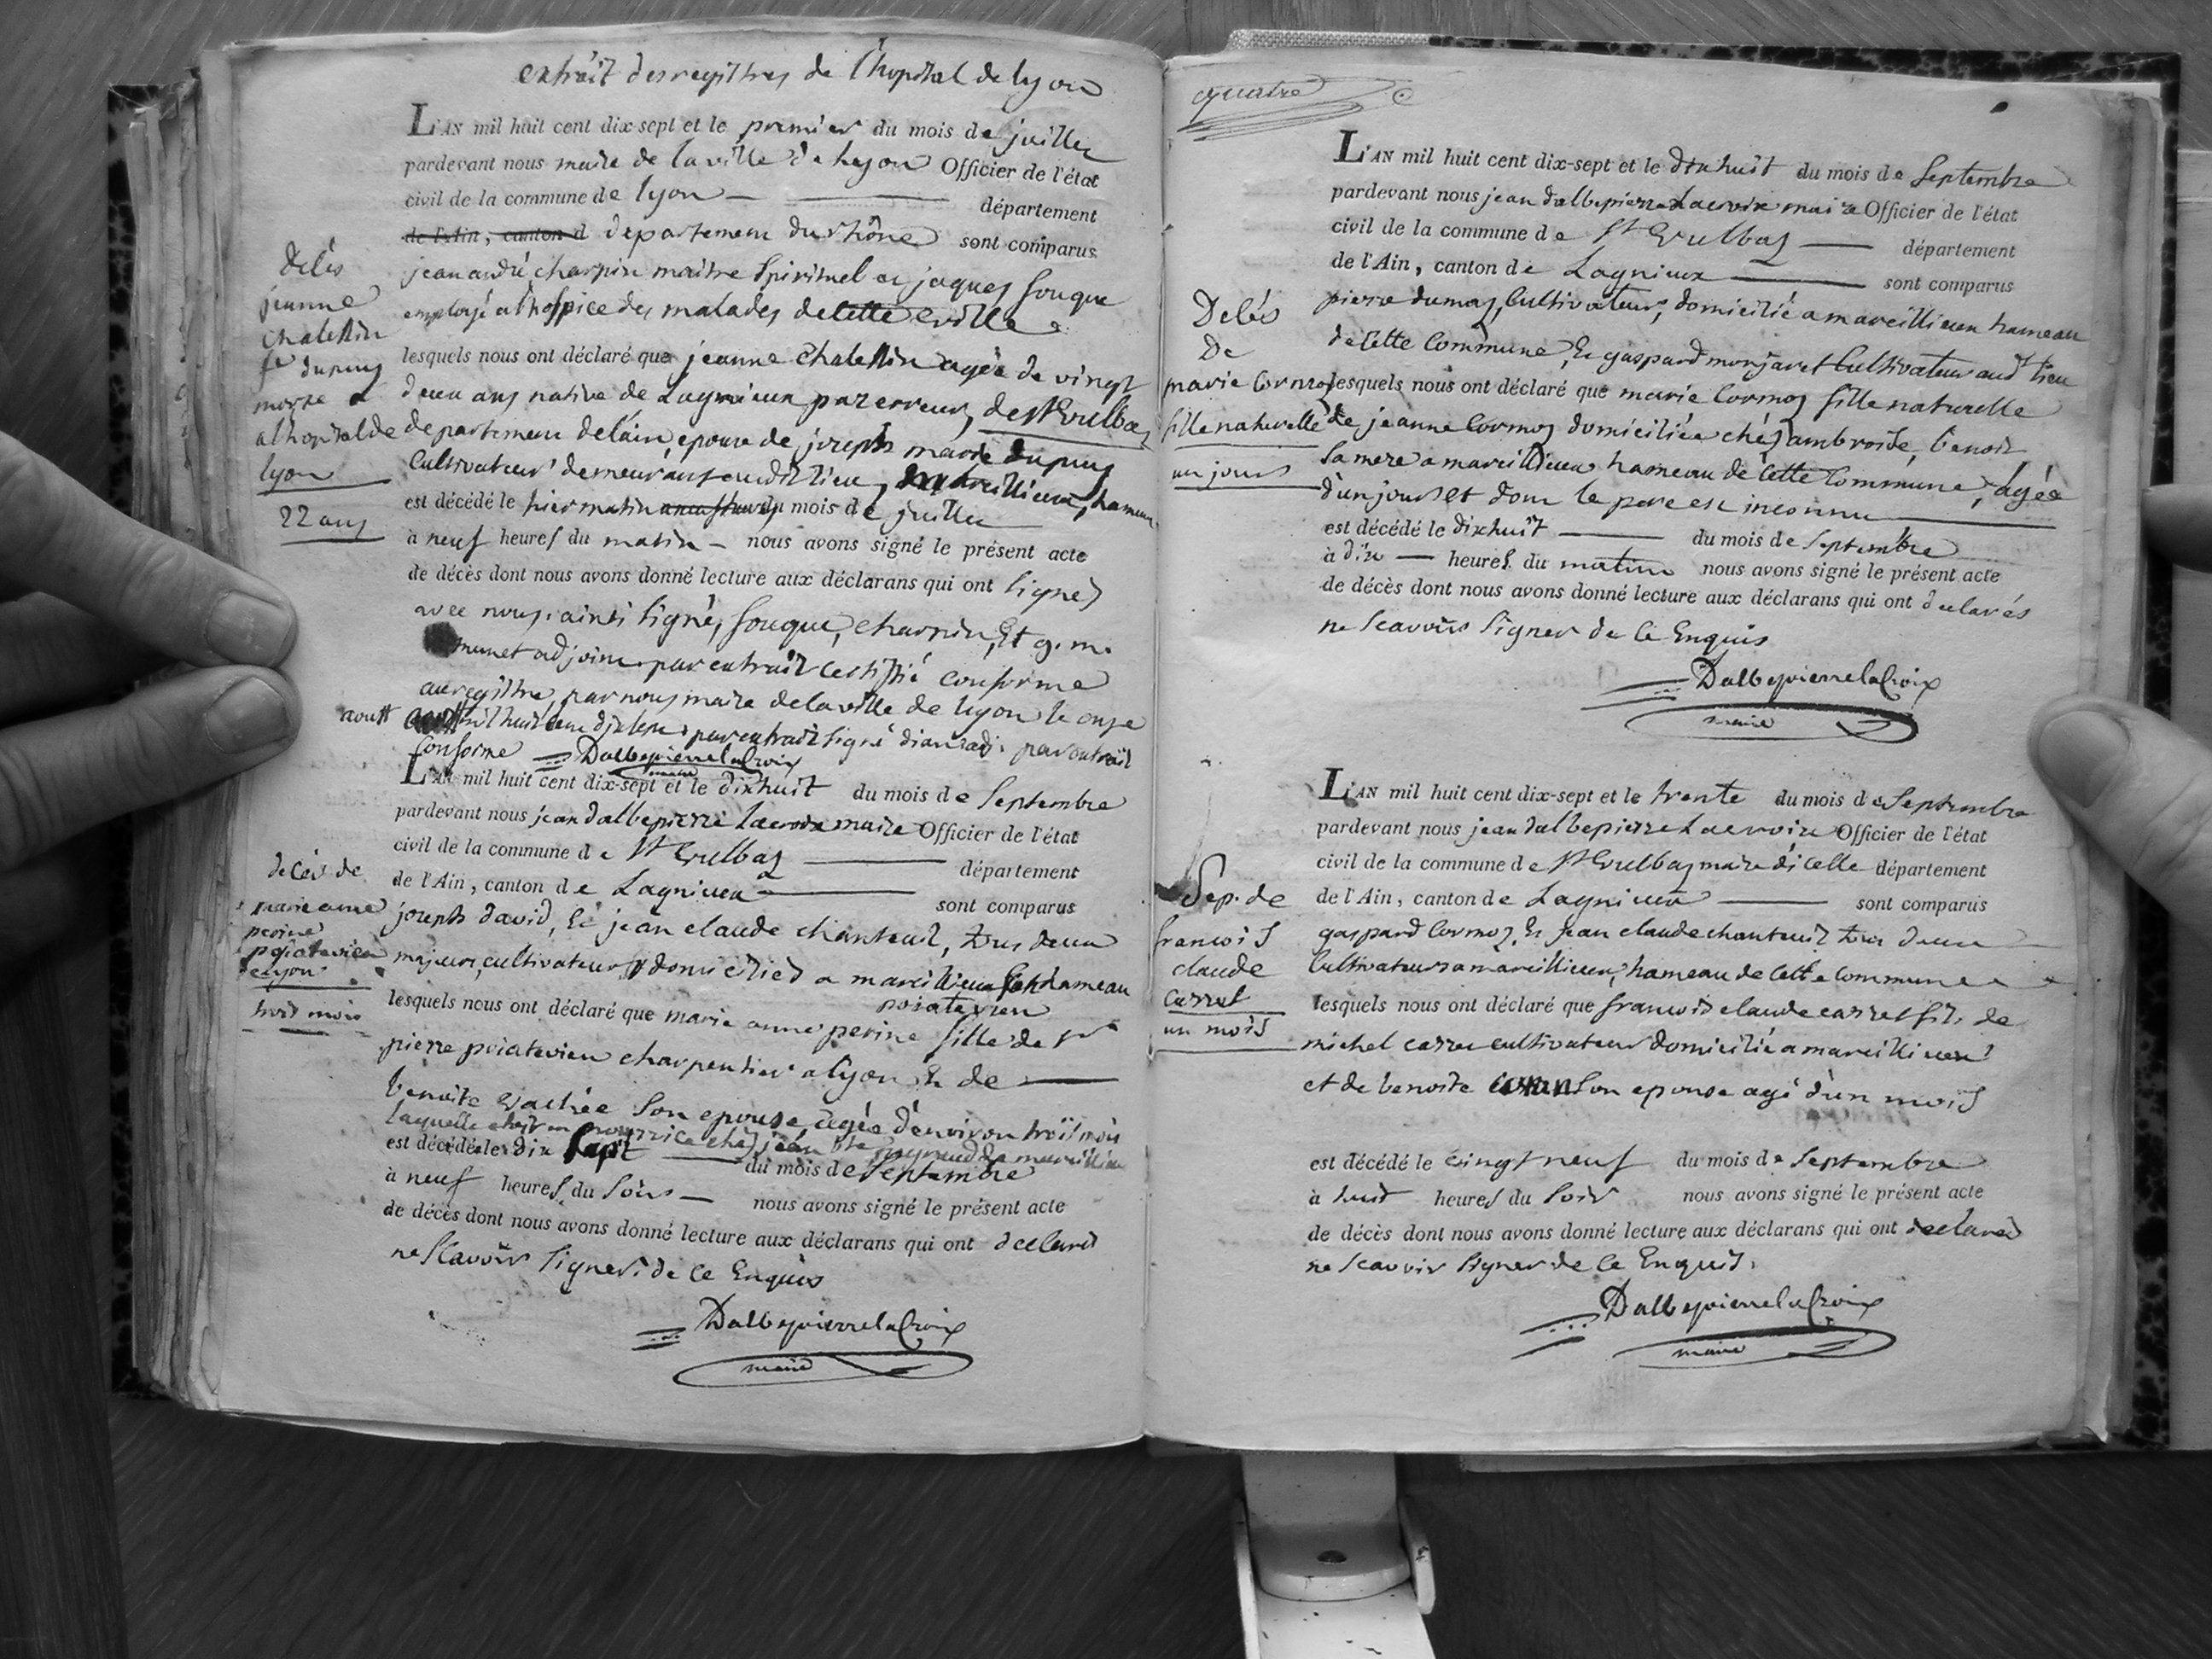 extrait des registres de l'hopital de lyon
L'AN mil huit cent dix-sept et le premier du mois de juillet
pardevant nous maire de la ville de Lyon Officier de l'état
civil de la commune de lyon — département
de l'Ain, canton d departement du rhône sont comparus
jean andré charpin maitre Spirituel et jaques fouque
employé a lhospice des malades de cette ville
lesquels nous ont déclaré que jeanne chalettin agée de vingt
deux ans native de Lagnieux par erreur, de st Vulbas
departement de l'ain, epouse de joseph marie dupuy
Cultivateur demeurant audit lieu, de marcillieux, hameau
est décédé le hier matin du mois de juillet
à neuf heures du matin — nous avons signé le présent acte
de décès dont nous avons donné lecture aux déclarans qui ont signés
avec nous. ainsi signé, fouque, charpin, Et g. m.
munet adjoint. par extrait certiffié conforme
au registre, par nous maire de la ville de lyon le onze
aoutt mil huit cent dix sept. par extrait signé adj. par extrait
Conforme Dalbepierrelacroix
maire
decès
jeanne
chalettin
fe dupuy
morte
a lhopital de
lyon
22 ans
L'AN mil huit cent dix-sept et le dixhuit du mois de Septembre
pardevant nous jean dalbepierre lacroix maire Officier de l'état
civil de la commune de St Vulbas — département
de l'Ain, canton de Lagnieux — sont comparus
joseph david, Et jean claude chanteuil, tous deux
majeurs, cultivateurs domiciliés a marcillieux hameau
lesquels nous ont déclaré que marie anne perine poiatevien fille de sr
pierre poiatevien charpentier a lyon Et de —
benoite vachée Son epouse, agée d'environ troïs mois
laquelle etoit en nourrice chéz jean bte de marcillieux
est décédée le dix sept — du mois de septembre
à neuf heures du soir — nous avons signé le présent acte
de décès dont nous avons donné lecture aux déclarans qui ont declarés
ne Scavoir Signer, de ce Enquis
Dalbepierrelacroix
maire
decés de
marie anne
perine
poiatevien
de lyon
trois mois
quatre
L'AN mil huit cent dix-sept et le dixhuit du mois de Septembre
pardevant nous jean dalbepierre Lacroix maire Officier de l'état
civil de la commune de St Vulbas — département
de l'Ain, canton de Lagnieux — sont comparus
pierre dumas, Cultivateur, domicilié a marcillieux hameau
de Cette Commune, Et gaspard monjaret Cultivateur aud.t lieu
lesquels nous ont déclaré que marie Cormoz fille naturelle
de jeanne Cormoz domiciliée chéz ambroise, benoit
Sa mere a marcillieux hameau de Cette Commune, agée
d'un jour et dont le pere est inconnu —
est décédé le dixhuit — du mois de Septembre
à dix — heures du matin nous avons signé le présent acte
de décès dont nous avons donné lecture aux déclarans qui ont declarés
ne Scavoir Signer de Ce Enquis
Dalbepierrelacroix
maire
Decés
De
marie Cormoz
fille naturelle
un jours
L'AN mil huit cent dix-sept et le trente du mois de Septembre
pardevant nous jean dalbepierre Lacroix Officier de l'état
civil de la commune de St Vulbas maire d'icelle département
de l'Ain, canton de Lagnieux — sont comparus
gaspard Cormoz, Et jean claude chanteuil tous deux
Cultivateurs a marcillieux, hameau de Cette Commune
lesquels nous ont déclaré que francois claude carret fils de
michel carret cultivateur domicilié a marcillieux
et de benoite Son epouse agé d'un mois
est décédé le vingt neuf du mois de Septembre
à huit heures du Soir nous avons signé le présent acte
de décès dont nous avons donné lecture aux déclarans qui ont declarés
ne Scavoir Signer de Ce Enquis.
Dalbepierrelacroix
maire
Sep. de
francois
claude
carret
un mois